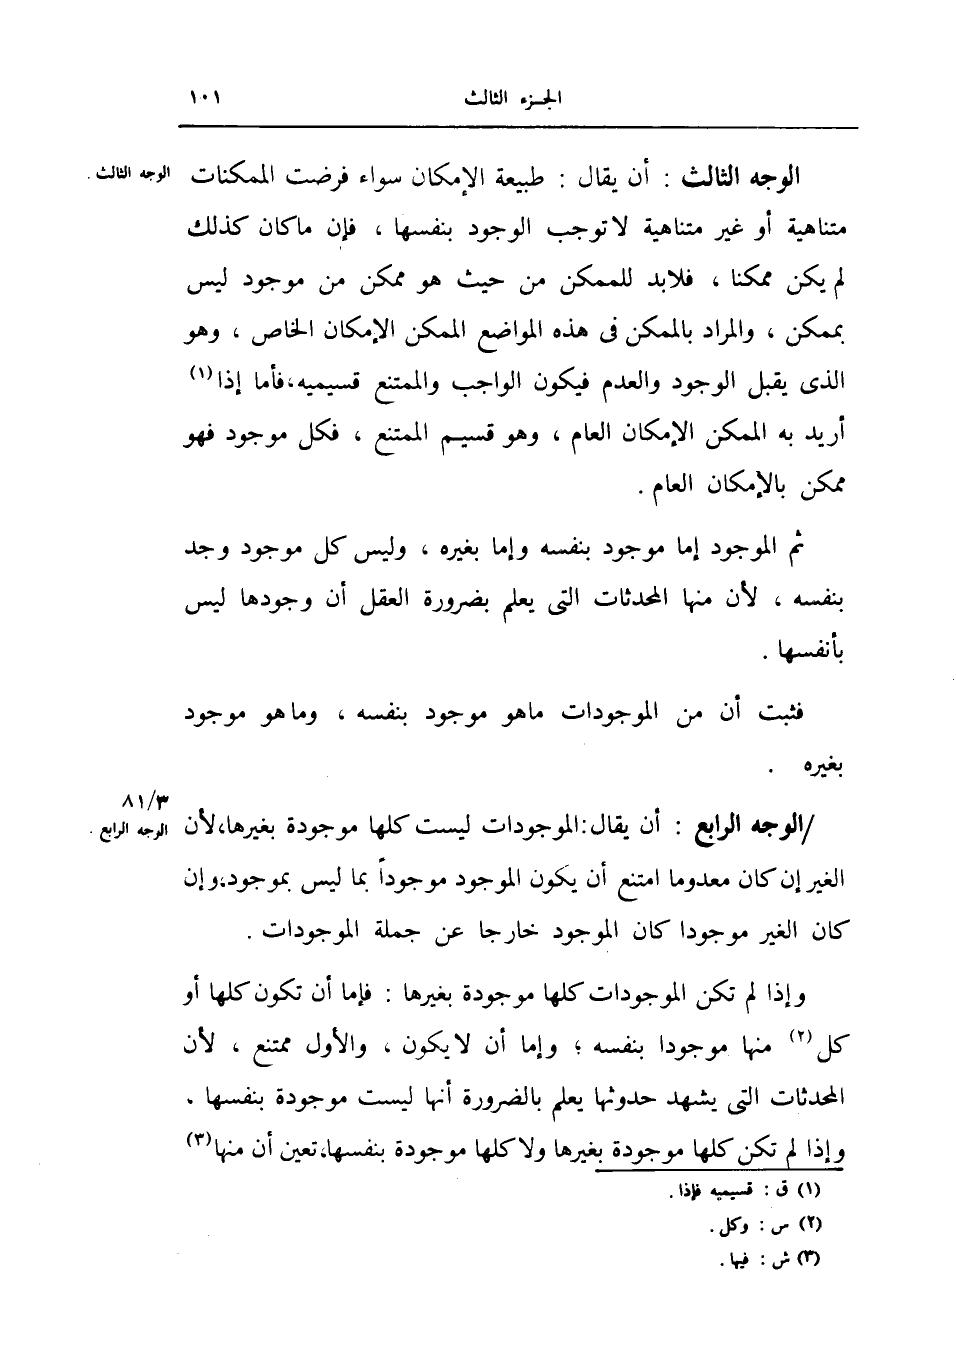 الجزء الثالث ١٠١
الوجه الثالث : أن يقال : طبيعة الإمكان سواء فرضت الممكنات
الوجه الثالث .
متناهية أو غير متناهية لا توجب الوجود بنفسها ، فإن ماكان كذلك
لم يكن ممكنا ، فلابد للممكن من حيث هو ممكن من موجود ليس
بممكن ، والمراد بالممكن فى هذه المواضع الممكن الإمكان الخاص ، وهو
الذى يقبل الوجود والعدم فيكون الواجب والممتنع قسيميه، فأما إذا(١)
أريد به الممكن الإمكان العام ، وهو قسيم الممتنع ، فكل موجود فهو
ممكن بالإمكان العام .
ثم الموجود إما موجود بنفسه وإما بغيره ، وليس كل موجود وجد
بنفسه ، لأن منها المحدثات التى يعلم بضرورة العقل أن وجودها ليس
بأنفسها .
فثبت أن من الموجودات ماهو موجود بنفسه ، وماهو موجود
بغيره .
٨١/٣
/الوجه الرابع : أن يقال: الموجودات ليست كلها موجودة بغيرها، لأن
الوجه الرابع .
الغير إن كان معدوما امتنع أن يكون الموجود موجوداً بما ليس بموجود، وإن
كان الغير موجودا كان الموجود خارجا عن جملة الموجودات .
وإذا لم تكن الموجودات كلها موجودة بغيرها : فإما أن تكون كلها أو
كل(٢) منها موجودا بنفسه ؛ وإما أن لا يكون ، والأول ممتنع ، لأن
المحدثات التى يشهد حدوثها يعلم بالضرورة أنها ليست موجودة بنفسها .
وإذا لم تكن كلها موجودة بغيرها ولا كلها موجودة بنفسها، تعين أن منها(٣)
(١) ق : قسيميه فإذا .
(٢) س : وكل .
(٣) ش : فيها .